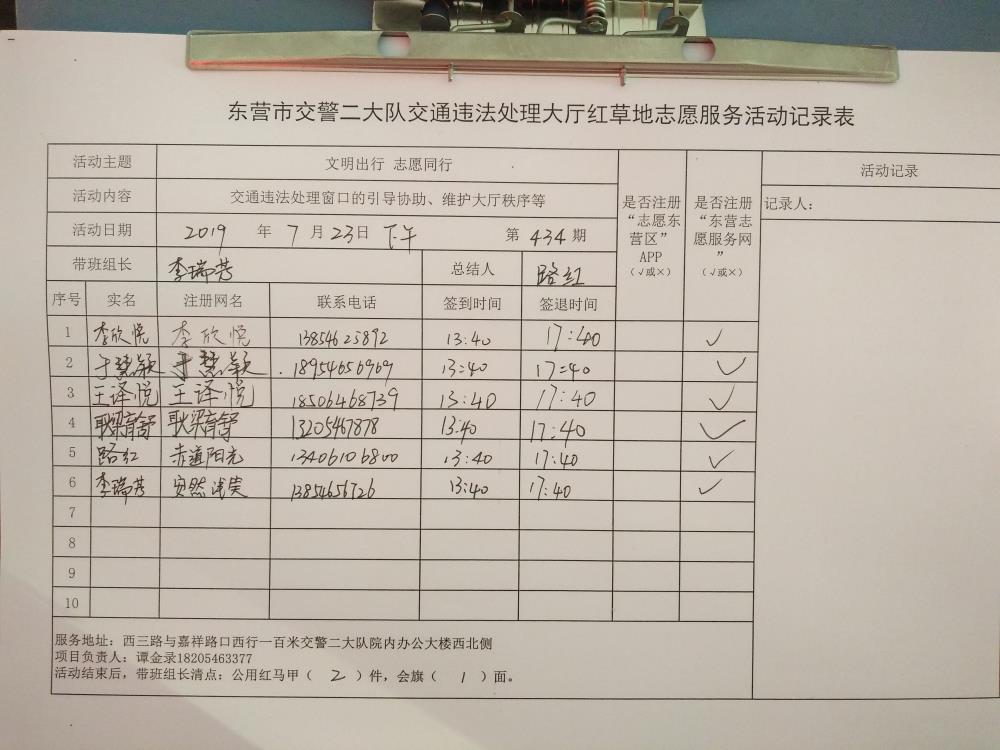 东营市交警二大队交通违法处理大厅红草地志愿服务活动记录表
活动主题 文明出行 志愿同行
活动内容 交通违法处理窗口的引导协助、维护大厅秩序等
活动日期 2019 年 7 月 23 日 下午 第 434 期
带班组长 李瑞芳 总结人 路红
是否注册“志愿东营区”APP（√或×）
是否注册“东营志愿服务网”（√或×）
活动记录
记录人：
序号 实名 注册网名 联系电话 签到时间 签退时间
1 李欣悦 李欣悦 13854625892 13:40 17:40 ✓
2 于慧颖 于慧颖 18954656969 13:40 17:40 ✓
3 王译悦 王译悦 18506468739 13:40 17:40 ✓
4 耿梁育舒 耿梁育舒 13205467878 13:40 17:40 ✓
5 路红 赤道阳光 13406106800 13:40 17:40 ✓
6 李瑞芳 安然 13854656726 13:40 17:40 ✓
7
8
9
10
服务地址：西三路与嘉祥路口西行一百米交警二大队院内办公大楼西北侧
项目负责人：谭金录18205463377
活动结束后，带班组长清点：公用红马甲（ 2 ）件，会旗（ 1 ）面。